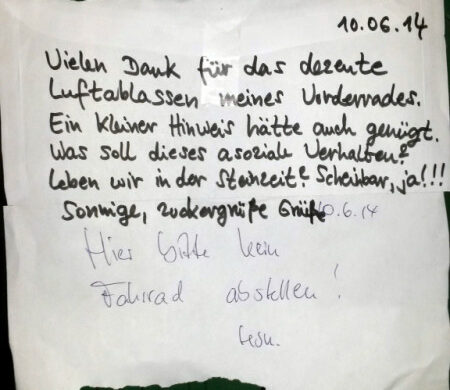 10.06.14
Vielen Dank für das dezente
Luftablassen meines Vorderrades.
Ein kleiner Hinweis hätte auch genügt.
Was soll dieses asoziale Verhalten?
Leben wir in der Steinzeit? Scheinbar, ja!!!
Sonnige, zuckergrüße Grüße
10.6.14
Hier bitte kein
Fahrrad abstellen!